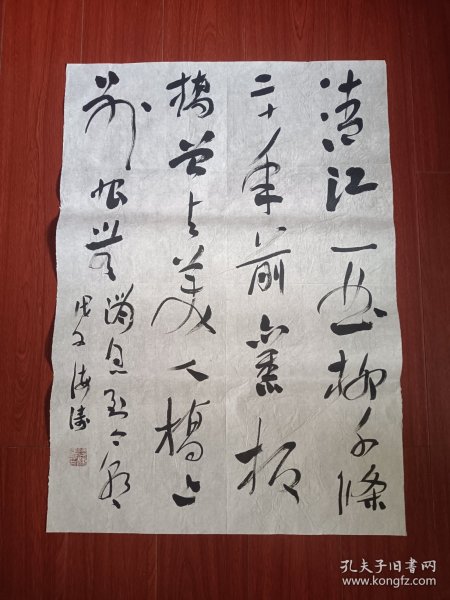 清江一曲柳千條
二十年前舊板
橋曾与美人橋上
別恨無消息到今朝
戊子海濤
孔夫子旧书网
www.kongfz.com